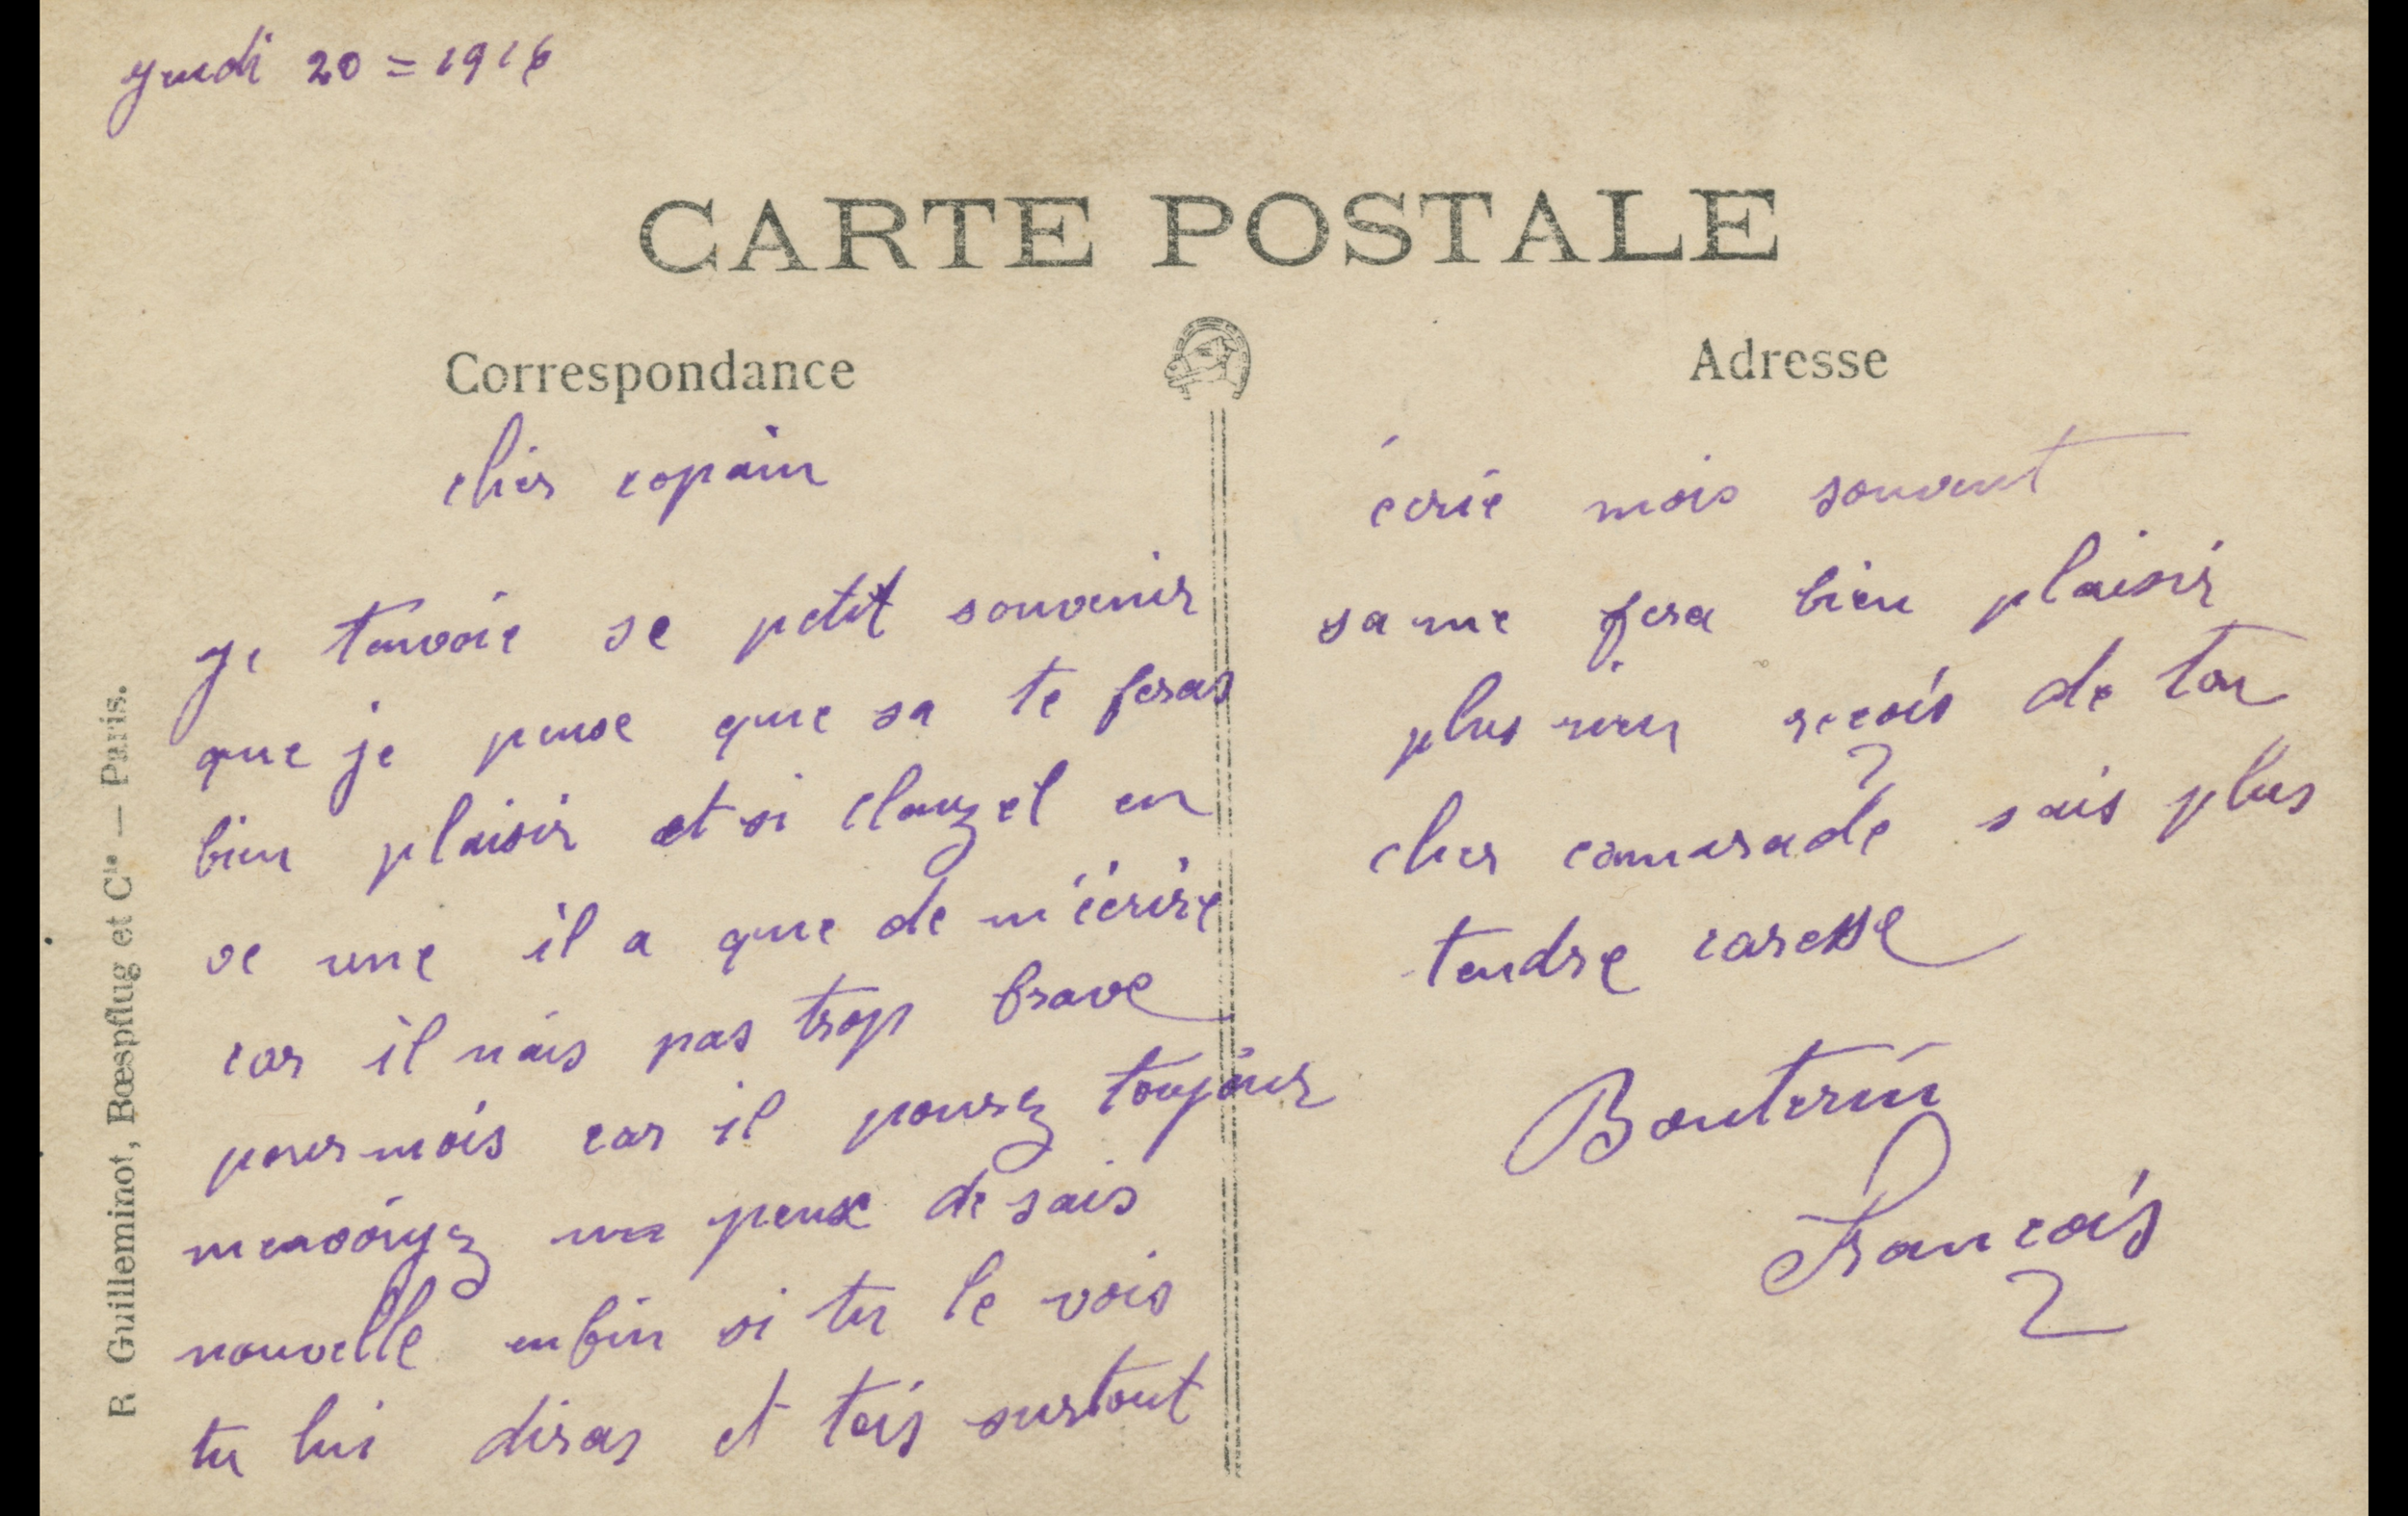 Jeudi 20 = 1916
CARTE POSTALE
Correspondance
cher copain
Je tenvoie se petit souvenir
que je pense que sa te feras
bien plaisir et si clauzel en
ve une il a que de m'écrire
car il nais pas trop brave
pour mois car il pourez toujour
menvoiyez un peux de sais
nouvelle enfin si tu le vois
tu lui diras et tois surtout
Adresse
écrie mois souvent
sa me fera bien plaisir
plus rien reçois de ton
cher camarade sais plus
tendre caresse
Bouterin
François
R. Guilleminot, Bœspflug et Cie — Paris.